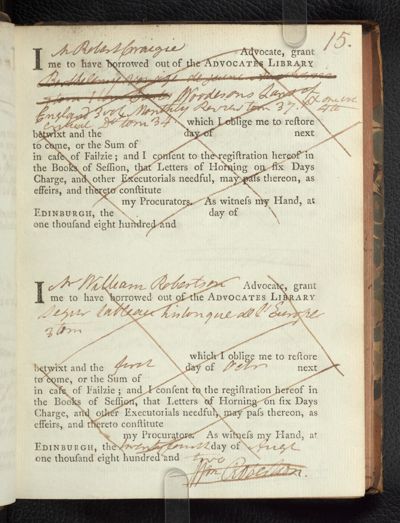 15.
I Mr Robert Craigie Advocate, grant
me to have borrowed out of the ADVOCATES LIBRARY
Wooddesons Laws of
England 3 vols Monthly Review tom 37.
tom 34 which I oblige me to reſtore
betwixt and the day of next
to come, or the Sum of
in caſe of Failzie; and I conſent to the regiſtration hereof in
the Books of Seſſion, that Letters of Horning on ſix Days
Charge, and other Executorials needful, may paſs thereon, as
effeirs, and thereto conſtitute
my Procurators. As witneſs my Hand, at
EDINBURGH, the day of
one thouſand eight hundred and
I Mr William Robertson Advocate, grant
me to have borrowed out of the ADVOCATES LIBRARY
Segur tableau historique de l'Europe
3 tom
which I oblige me to reſtore
betwixt and the first day of Octr next
to come, or the Sum of
in caſe of Failzie; and I conſent to the regiſtration hereof in
the Books of Seſſion, that Letters of Horning on ſix Days
Charge, and other Executorials needful, may paſs thereon, as
effeirs, and thereto conſtitute
my Procurators. As witneſs my Hand, at
EDINBURGH, the day of Augt
one thouſand eight hundred and two
Wm Robertson.